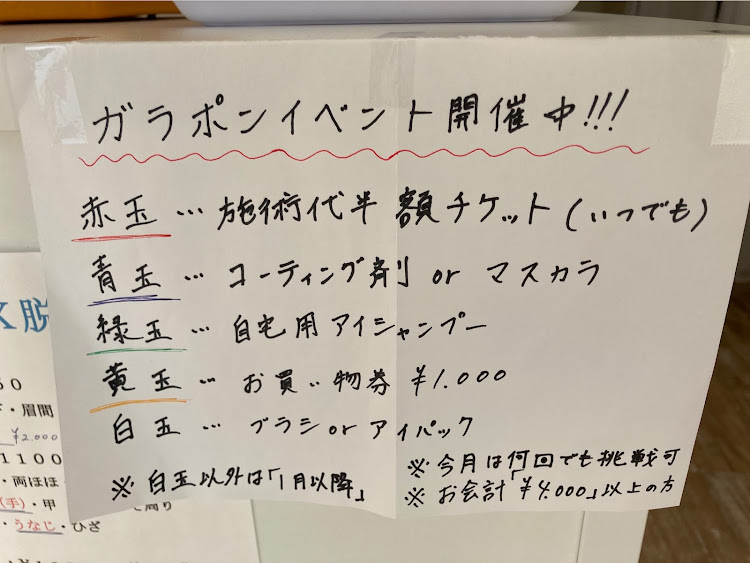 ガラポンイベント開催中!!!
赤玉…施術代半額チケット(いつでも)
青玉…コーティング剤 or マスカラ
緑玉…自宅用アイシャンプー
黄玉…お買い物券 ¥1.000
白玉…ブラシ or アイパック
※白玉以外は「1月以降」
※今月は何回でも挑戦可
※お会計「¥4.000」以上の方
脱
・眉間
¥2.000
1100
・両ほほ
(手)・甲
・うなじ・ひざ